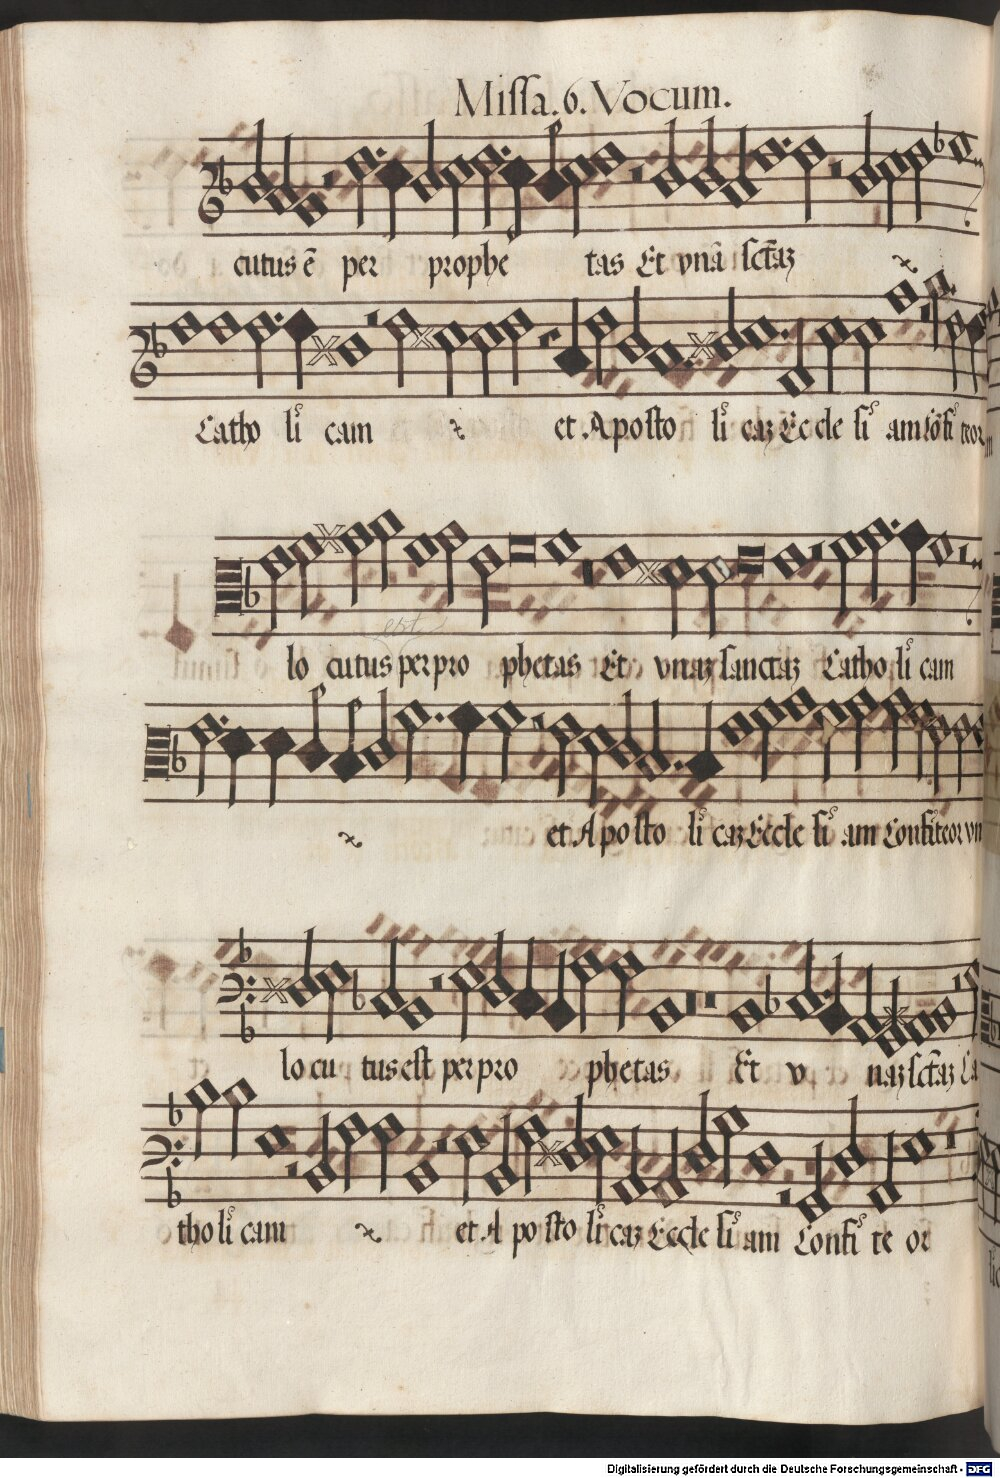 Missa. 6. Vocum.
cutus ē per prophe tas Et vnā sctāȝ
Catho li cam et Aposto li caȝ Eccle si am Cōfi teor
est
lo cutus per pro phetas Et vnaȝ sanctaȝ Catho li cam
et A posto li caȝ Eccle si am Confiteor vn
lo cu tus est per pro phetas Et v naȝ sctāȝ Ca
tho li cam et A po sto li caȝ Eccle si am Confi te or
Digitalisierung gefördert durch die Deutsche Forschungsgemeinschaft - DFG